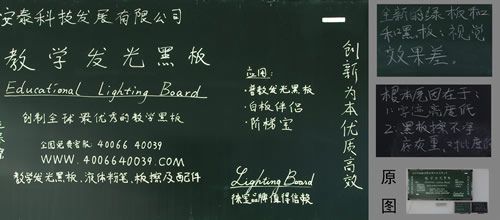 安泰科技发展有限公司
教学发光黑板
Educational Lighting Board
创制全球最优秀的教学黑板
全国免费客服: 40066 40039
WWW.4006640039.COM
教学发光黑板、液体粉笔、板擦及配件
应用:
·普教发光黑板
·白板伴侣
·阶梯宝
Lighting Board
徕宝品牌值得信赖
创新为本优质高效
全新的绿板和
和黑板:视觉
效果差.
根本原因在于:
1.字迹亮度低
2.黑板擦不净
原图